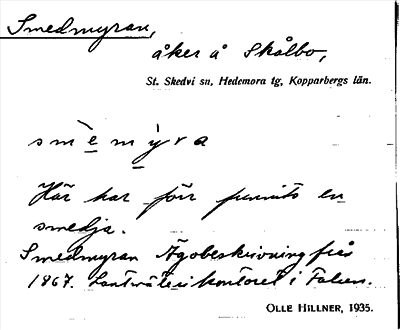 Smedmyran,
åker å Skålbo,
St. Skedvi sn, Hedemora tg, Kopparbergs län.
smè̱mỳ̱ra
Här har förr funnits en
smedja.
Smedmyran Ägobeskrivning från
1867. Lantmäterikontoret i Falun.
OLLE HILLNER, 1935.